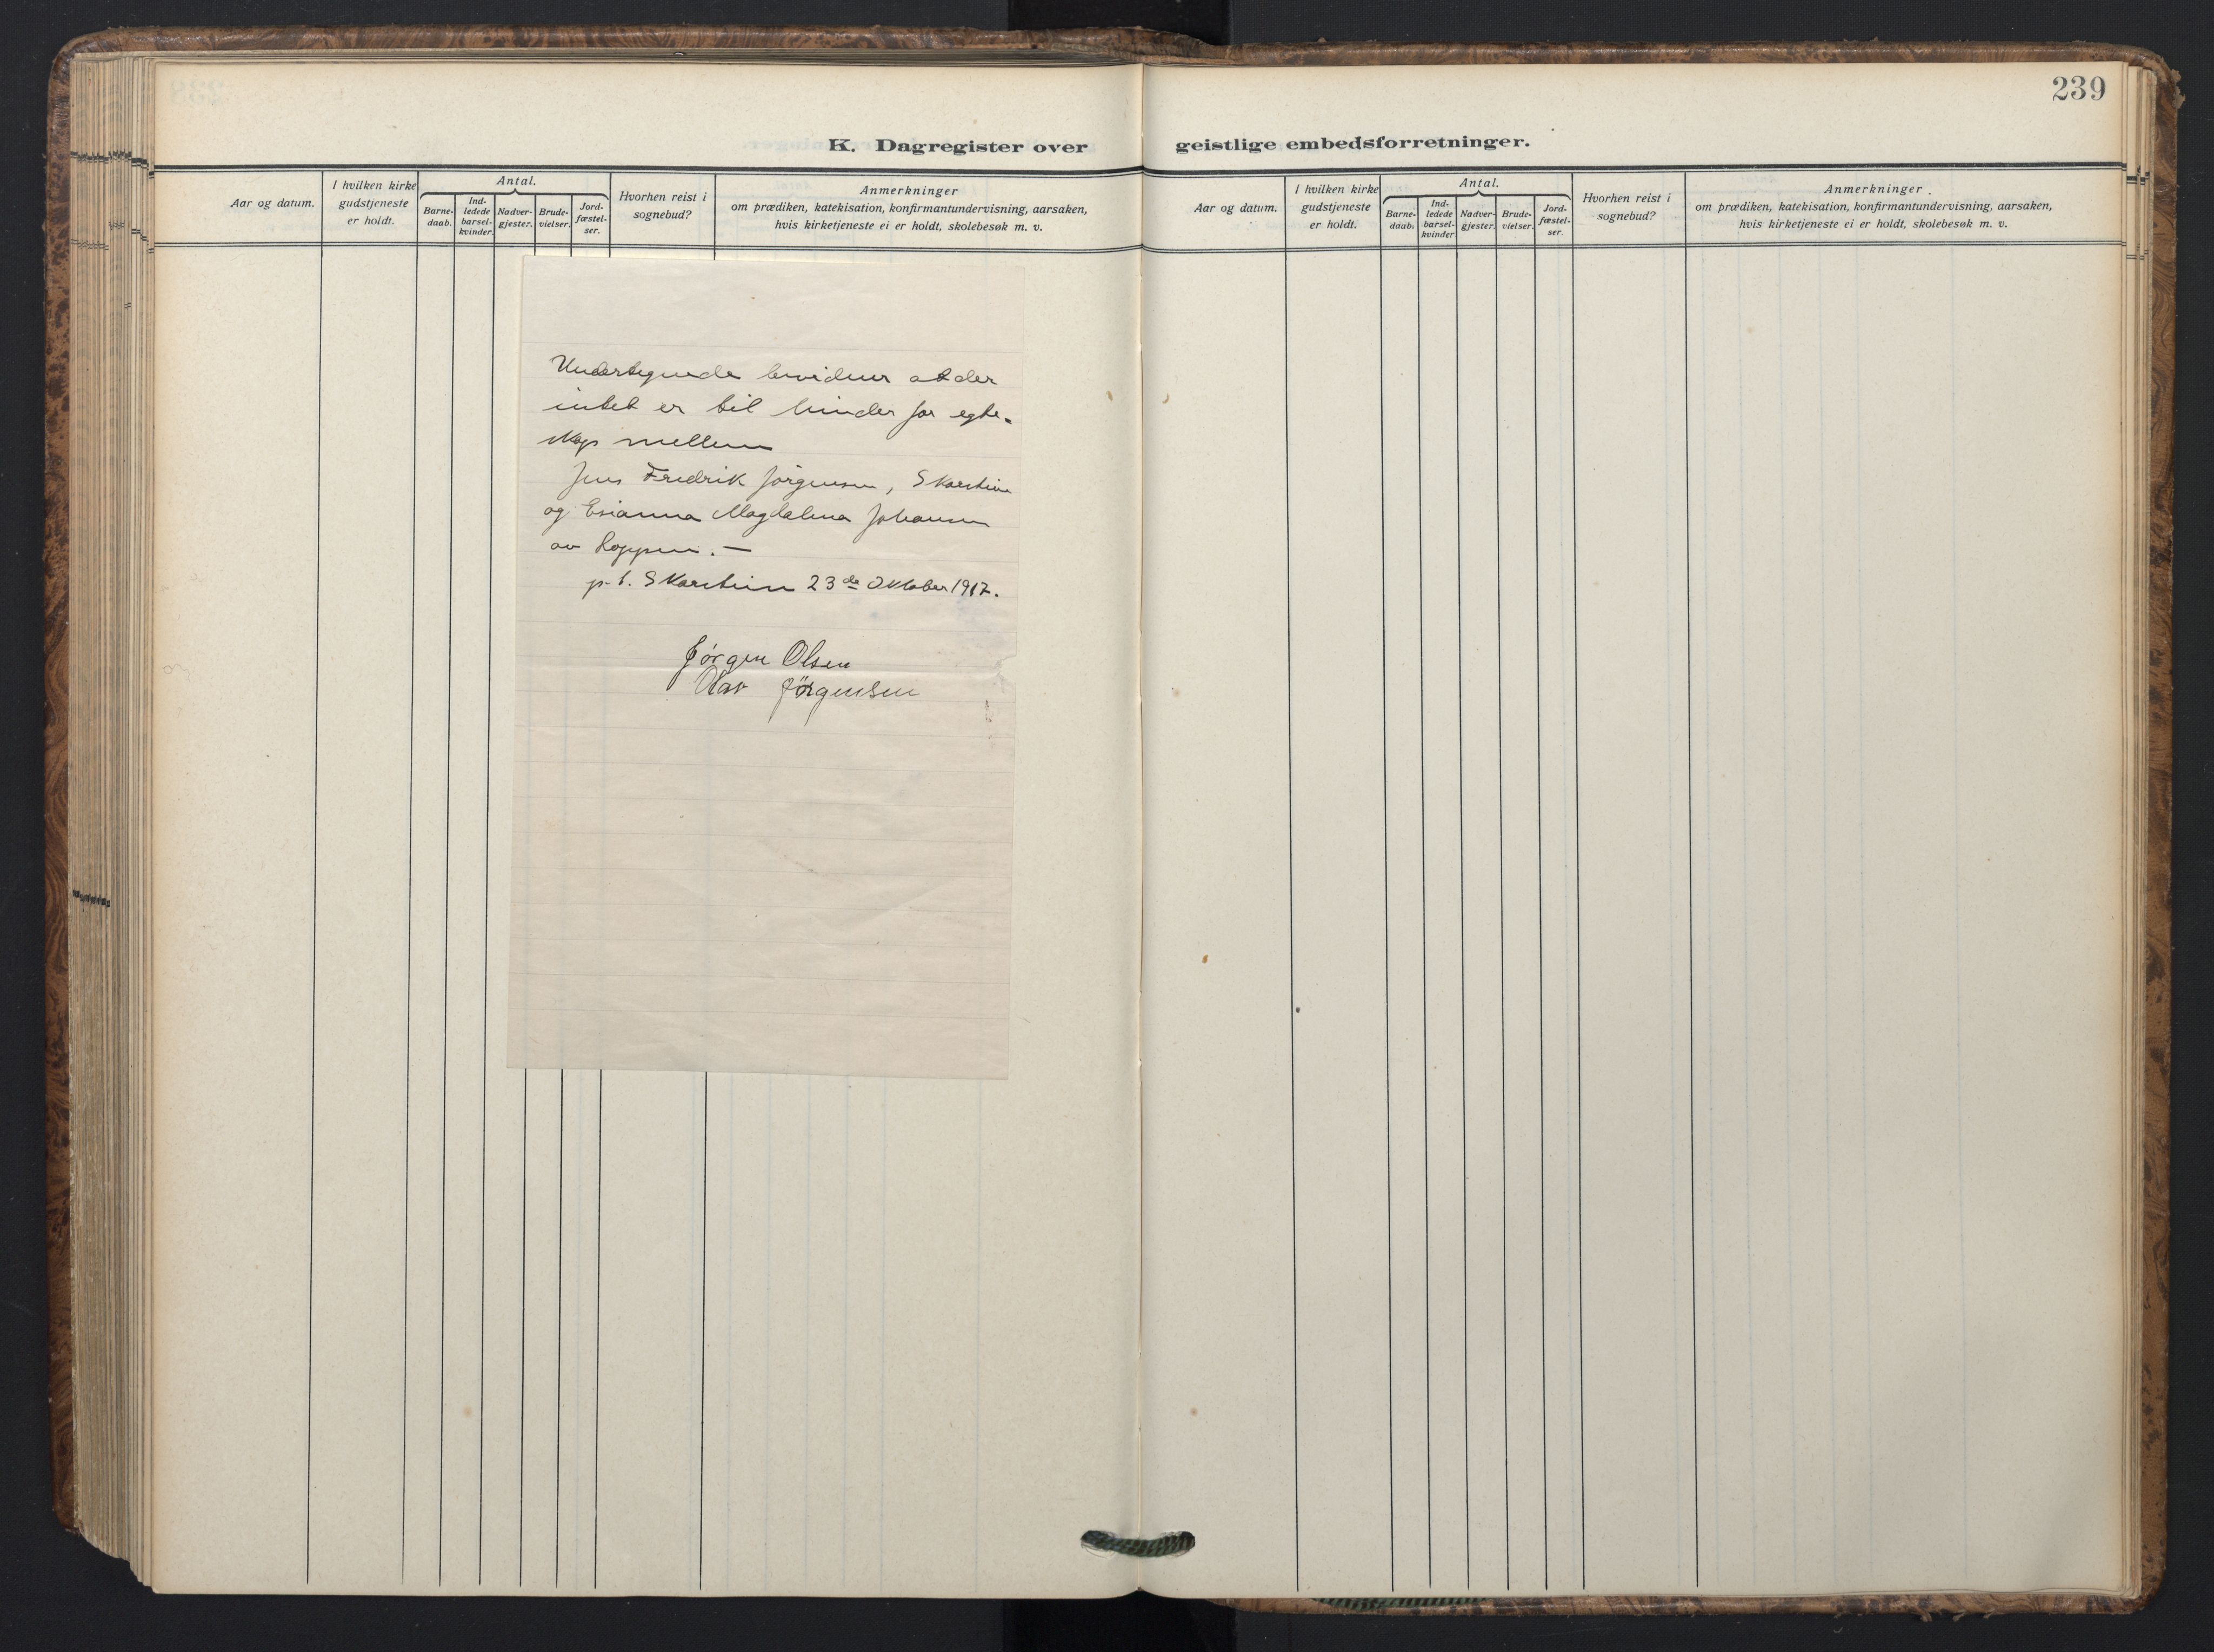 239
K. Dagregister over geistlige embedsforretninger.
Aar og datum.
I hvilken kirke
gudstjeneste
er holdt.
Antal.
Barne-
daab.
Ind-
ledede
barsel-
kvinder.
Nadver-
gjester.
Brude-
vielser.
Jord-
fæstel-
ser.
Hvorhen reist i
sognebud?
Anmerkninger
om prædiken, katekisation, konfirmantundervisning, aarsaken,
hvis kirketjeneste ei er holdt, skolebesøk m. v.
Undertegnede bevidner at der
intet er til hinder for egte-
skap mellem
Jens Fredrik Jörgensen, Skarstein
og Esianna Magdalena Johansen
av Loppen. —
p. t. Skarstein 23de Oktober 1917.
Jörgen Olsen
Olav Jörgensen
Aar og datum.
I hvilken kirke
gudstjeneste
er holdt.
Antal.
Barne-
daab.
Ind-
ledede
barsel-
kvinder
Nadver-
gjester.
Brude-
vielser.
Jord-
fæstel-
ser.
Hvorhen reist i
sognebud?
Anmerkninger.
om prædiken, katekisation, konfirmantundervisning, aarsaken,
hvis kirketjeneste ei er holdt, skolebesøk m. v.